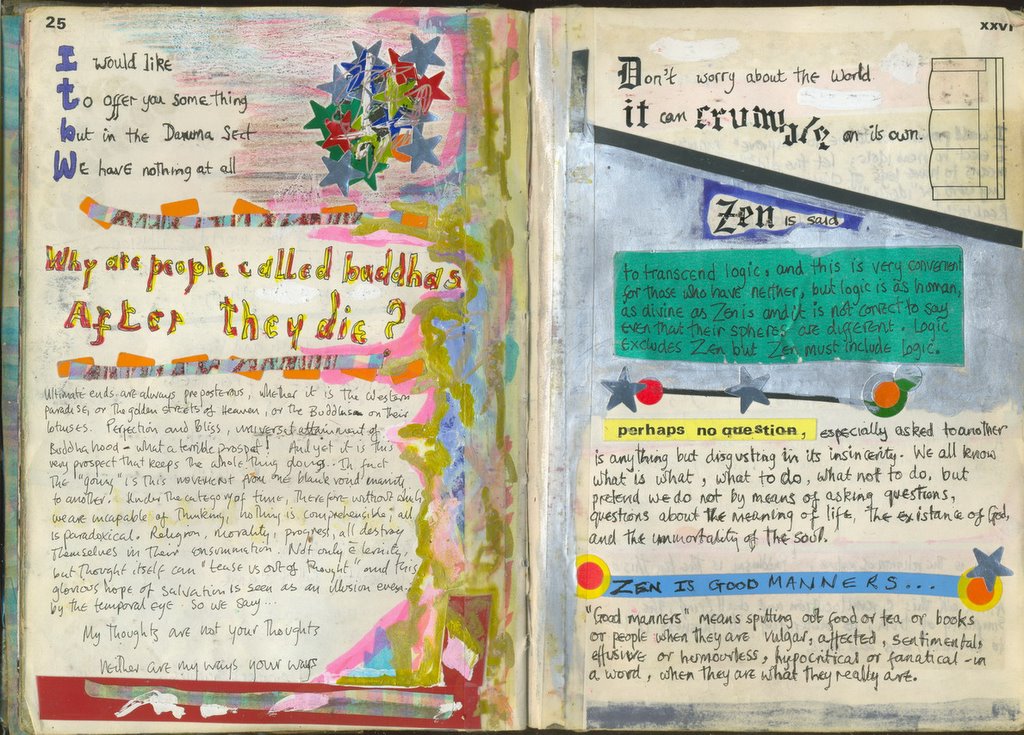 25
I would like
to offer you something
but in the Daruma Sect
We have nothing at all
Why are people called buddhas
After they die?
Ultimate ends are always preposterous, whether it is the Western
paradise, or the golden streets of Heaven, or the Buddhas on their
lotuses. Perfection and Bliss, universal attainment of
Buddhahood - what a terrible prospect! And yet it is this
very prospect that keeps the whole thing going. In fact
the "going" is this movement from one blank void inanity
to another. Under the category of time, therefore without which
we are incapable of thinking, nothing is comprehensible; all
is paradoxical. Religion, morality, progress, all destroy
themselves in their consummation. Not only eternity,
but thought itself can "tease us out of thought" and this
glorious hope of salvation is seen as an illusion even
by the temporal eye. So we say...
My Thoughts are not your Thoughts
neither are my ways your ways
XXVI
Don't worry about the world
it can crumble on its own.
Zen is said
to transcend logic, and this is very convenient
for those who have neither, but logic is as human,
as divine as Zen is and it is not correct to say
even that their spheres are different. Logic
excludes Zen but Zen must include logic.
perhaps no question, especially asked to another
is anything but disgusting in its insincerity. We all know
what is what, what to do, what not to do, but
pretend we do not by means of asking questions,
questions about the meaning of life, the existance of God,
and the immortality of the soul.
ZEN IS GOOD MANNERS...
"Good manners" means spitting out food or tea or books
or people when they are vulgar, affected, sentimental,
effusive or humourless, hypocritical or fanatical - in
a word, when they are what they really are.